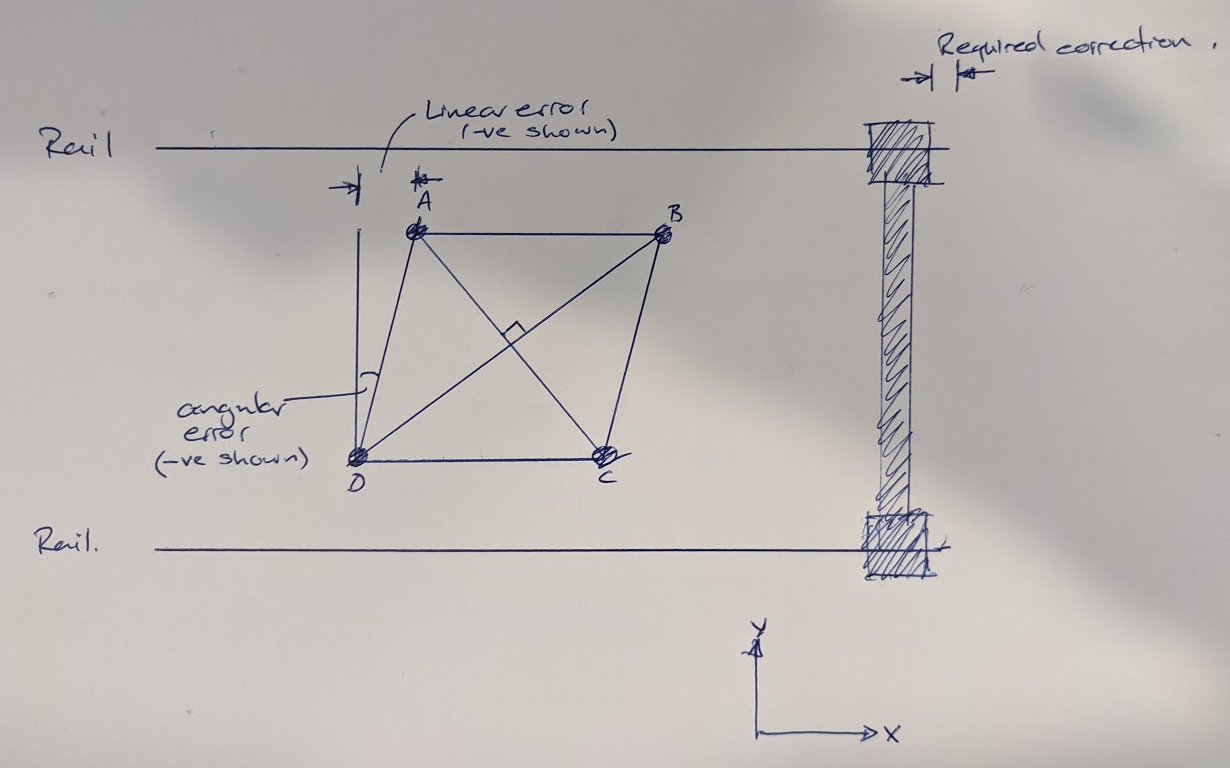 Required correction.
Linear error
(-ve shown)
Rail
A
B
angular
error
(-ve shown)
D
C
Rail.
Y
X